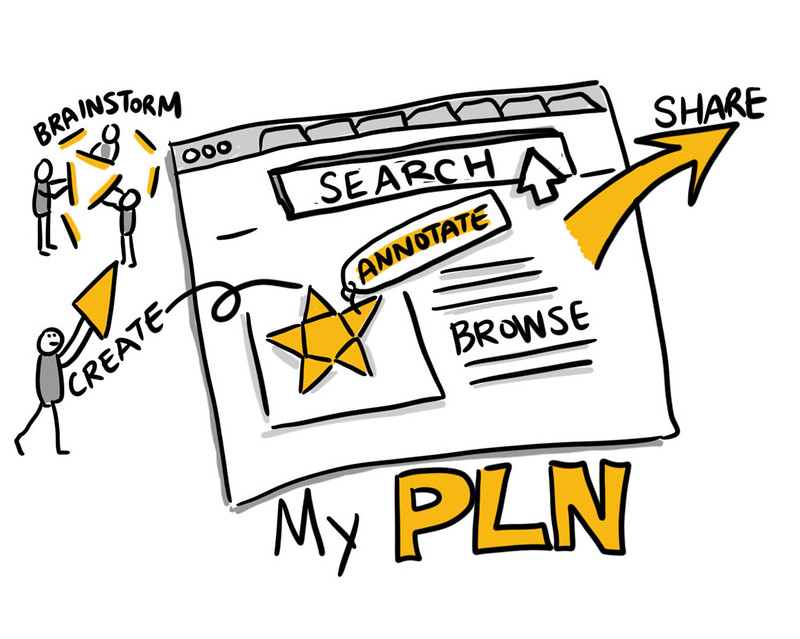 BRAINSTORM
SHARE
SEARCH
ANNOTATE
CREATE
BROWSE
My PLN